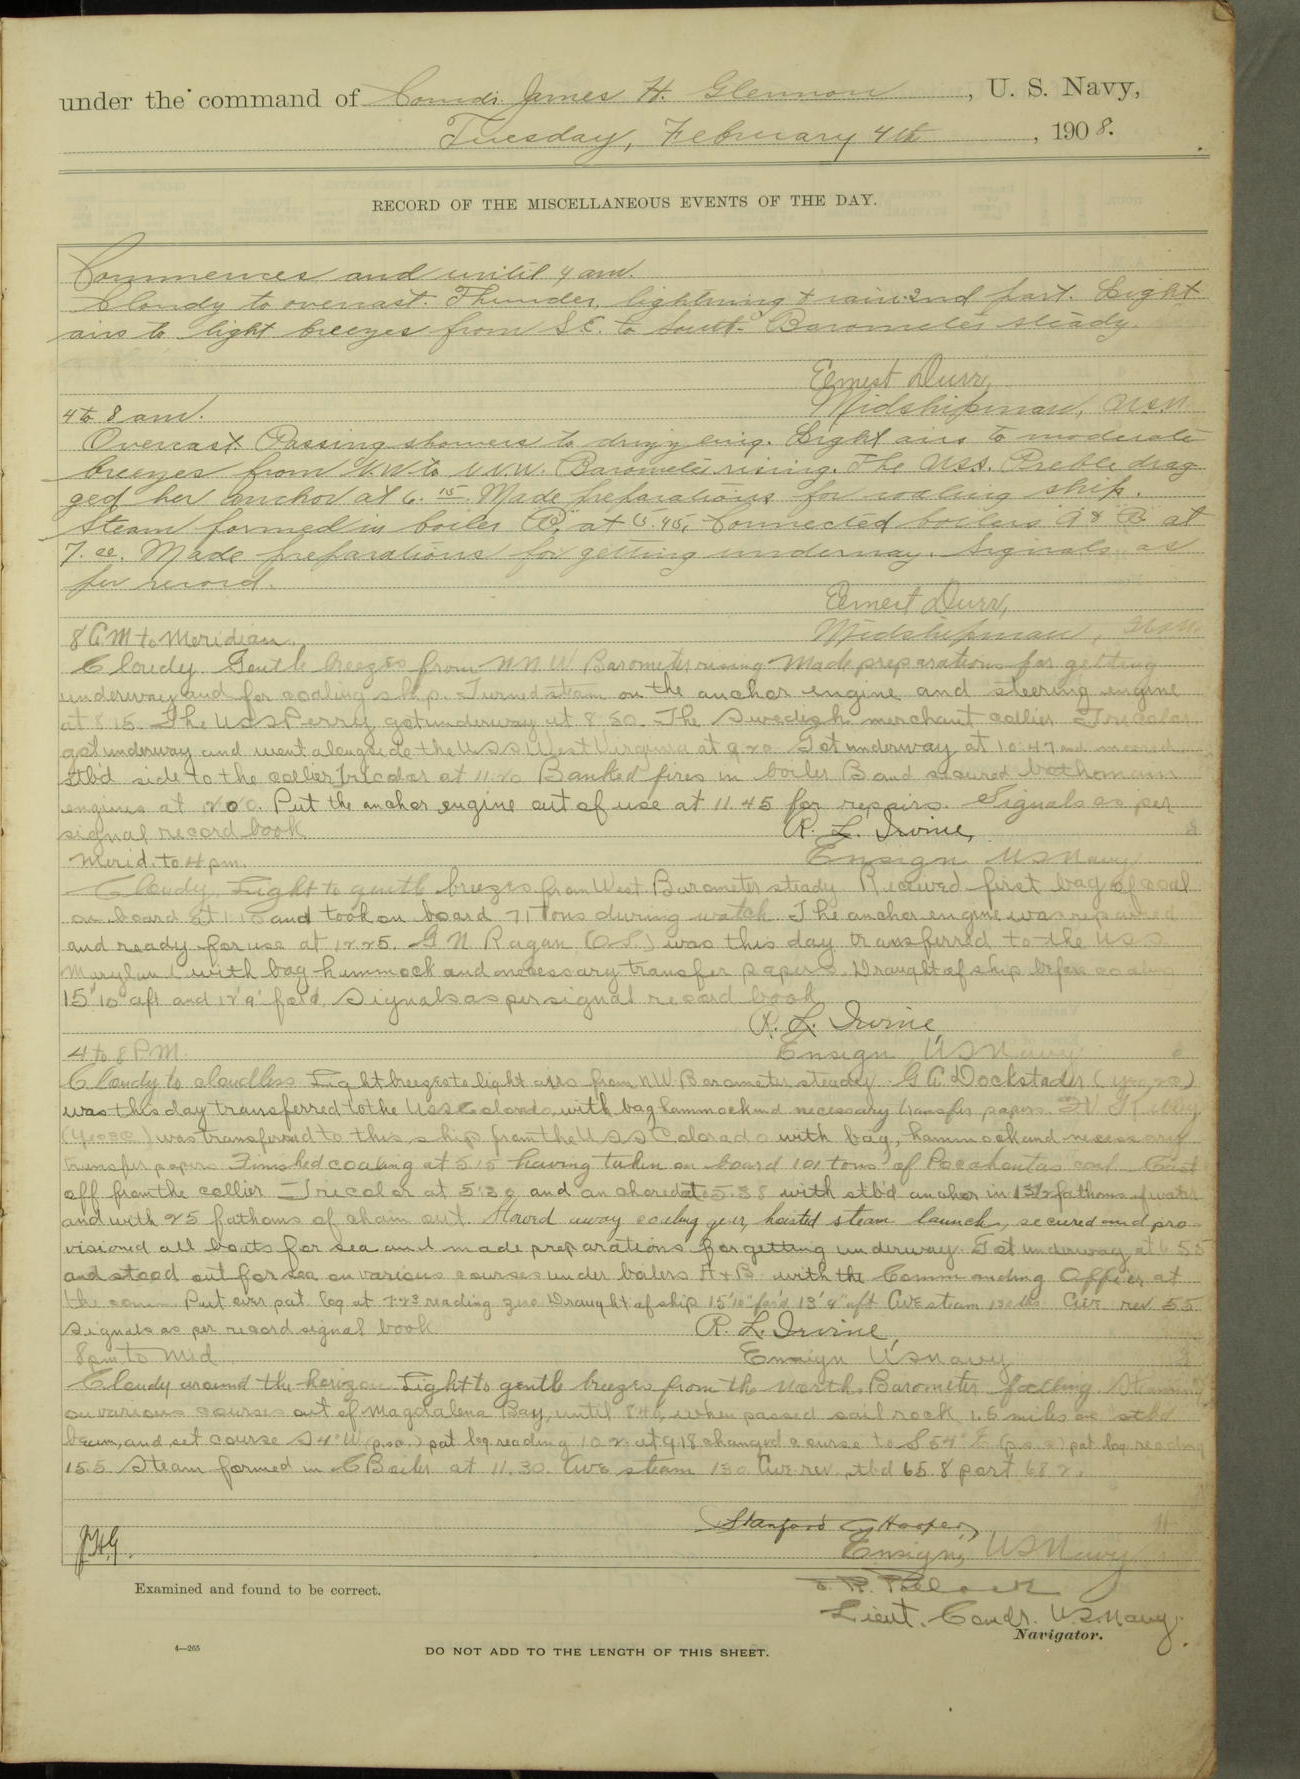 under the command of Comdr. James H. Glennon, U. S. Navy,
Tuesday, February 4th, 1908.
RECORD OF THE MISCELLANEOUS EVENTS OF THE DAY.
Commences and until 4 am.
Cloudy to overcast. Thunder, lightning & rain 2nd part. Light
airs to light breezes from S.E. to South. Barometer steady.
Ernest Durr,
Midshipman, USN.
4 to 8 am.
Overcast. Passing showers to drizzling. Light airs to moderate
breezes from N.W. to N.N.W. Barometer rising. The USS. Preble drag-
ged her anchor at 6.15. Made preparations for coaling ship.
Steam formed in boiler B, at 5.45, Connected boilers A & B at
7.00. Made preparations for getting underway. Signals as
per record.
Ernest Durr,
Midshipman, USN.
8 AM to Meridian.
Cloudy Gentle breezes from NNW Barometer rising Made preparations for getting
underway and for coaling ship. Turned steam on the anchor engine and steering engine
at 8.15. The USS Perry got underway at 8.50. The Swedish merchant collier Tricolor
got underway and went alongside the USS West Virginia at 9.20 Got underway at 10.47 and moored
stb'd side to the collier Tricolor at 11.20 Banked fires in boiler B and secured both main
engines at Put the anchor engine out of use at 11.45 for repairs. Signals as per
signal record book
R. L. Irvine,
Ensign US Navy
Merid. to 4 pm.
Cloudy, Light to gentle breezes from West. Barometer steady. Received first bag of coal
on board at 1.15 and took on board 71 tons during watch. The anchor engine was repaired
and ready for use at 12.25. G N Ragan (O.S.) was this day transferred to the USS
Maryland with bag hammock and necessary transfer papers. Draught of ship before coaling
15'10" aft and 12'9" for'd. Signals as per signal record book
R. L. Irvine,
Ensign US Navy
4 to 8 PM.
Cloudy to cloudless Light breezes to light airs from NW Barometer steady. G A Dockstader
was this day transferred to the USS Colorado, with bag hammock and necessary transfer papers.
was transferred to this ship from the USS Colorado with bag, hammock and necessary
transfer papers. Finished coaling at 5.15 having taken on board 101 tons of Pocahontas coal. Cast
off from the collier Tricolor at 5.30 and anchored at 5.38 with stb'd anchor in 13½ fathoms of water
and with 25 fathoms of chain out. Stowed away coaling gear, hoisted steam launch, secured and pro-
visioned all boats for sea and made preparations for getting underway. Got underway at 6.55
and stood out for sea on various courses under boilers A & B with the Commanding Officer at
the conn. Put over pat. log at 7.23 reading zero Draught of ship 15'10" for'd 13'9" aft Ave steam 130 lbs. Ave. rev 55
Signals as per record signal book
R. L. Irvine,
Ensign US Navy
8 pm to Mid
Cloudy around the horizon Light to gentle breezes from the North. Barometer falling. Steaming
on various courses out of Magdalena Bay, until when passed sail rock 1.5 miles on stb'd
beam, and set course S 4° W (p.s.c.) pat log reading 10.2. at 9.18 changed course to S 54° E (p.s.c.) pat log reading
15.5 Steam formed in C Boiler at 11.30. Ave steam 130 Ave rev. stbd 65.8 port 68.2.
Stanford C Hooper,
Ensign, US Navy
JHG.
Examined and found to be correct.
Lieut. Comdr. U.S. Navy.
Navigator.
4—265
DO NOT ADD TO THE LENGTH OF THIS SHEET.